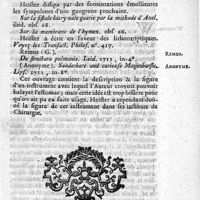 Heister dissipa par des fomentations émollientes
les symptomes d'une gangrene prochaine.
Sur la fistule lacrymale guérie par la méthode d'Anel,
ibid. obs. 66.
Sur la membrane de l'hymen. obs. 66.
Heister a écrit en faveur des lithontriptiques.
Voyez les Transact. Philos. n°. 417.
Remus (G.)
REMUS.
De fractura pulmonis. Leid. 1711, in-4°.
(Anonyme) Sonderbare und curieuse Magenbürste.
ANONYME.
Lips. 1711, in-8°.
Cet ouvrage contient la description & la figure
d'un instrument avec lequel l'Auteur croyoit pouvoir
balayer l'estomac; mais cette idée est trop bisarre pour
qu'on ait pu en faire usage. Heister a cependant don-
né la figure de cet instrument dans ses instituts de
Chirurgie.